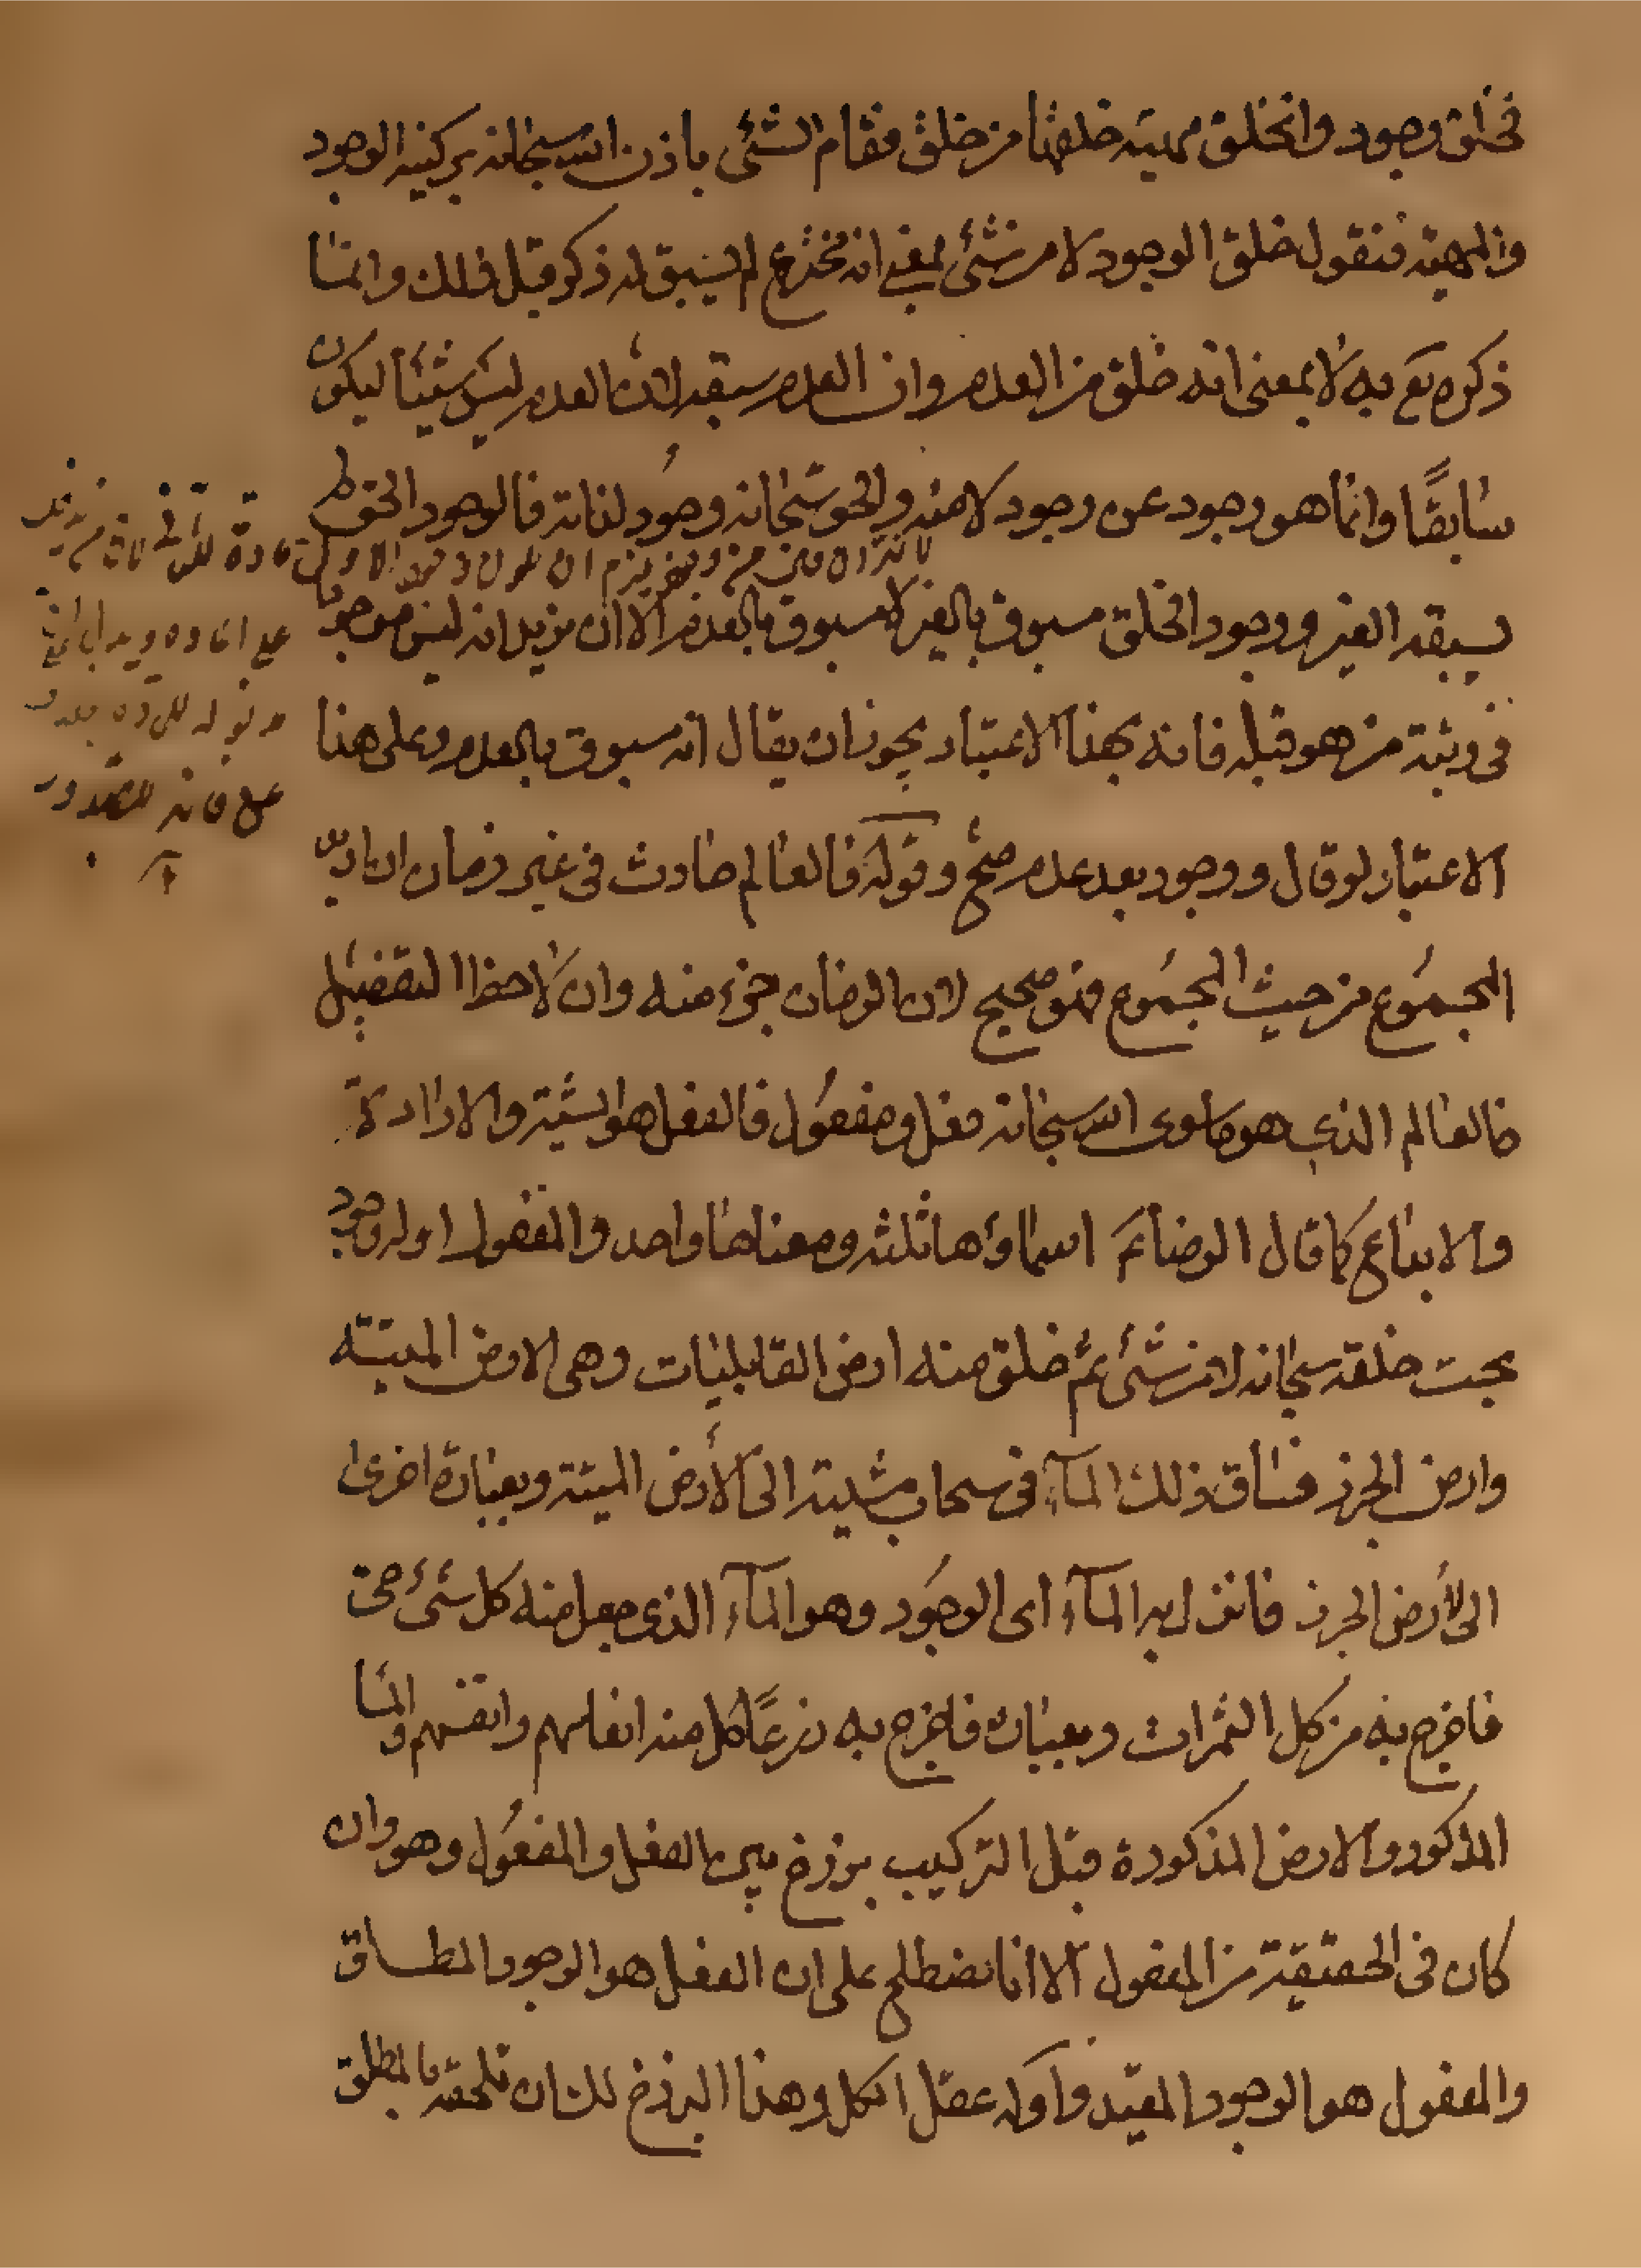 فخلق وجود وانخلق مهيته خلقها من خلق فقام الشئ باذن الله سبحانه بركنيه الوجود
والمهية فنقول خلق الوجود لا من شئ بمعنى انه مخترع لم يسبق له ذكر قبل ذلك وانما
ذكره تع به لا بمعنى انه خلق من العدم وان العدم سبقه لان العدم ليس شيئا ليكون
سابقًا وانما هو وجود عن وجود لا منه والحق سبحانه وجود لذاته فالوجود الحق لم
يسبقه الغير ووجود الخلق مسبوق بالغير لا مسبوق بالعدم الا ان يريد انه ليس موجودا
فى رتبة من هو قبله فانه بهذا الاعتبار يجوز ان يقال انه مسبوق بالعدم وعلى هذا
الاعتبار لو قال ووجود بعد عدم صح وقوله فالعالم حادث فى غير زمان ان اراد به
المجموع من حيث المجموع فهو صحيح لان الزمان جزء منه وان لاحظ التفضيل
فالعالم الذى هو ما سوى الله سبحانه فعل ومفعول فالفعل هو المشية والارادة
والابداع كما قال الرضا ع اسماؤها ثلثه ومعناها واحد والمفعول اوله وجود
بحت خلقه سبحانه لا من شئ ثم خلق منه ارض القابليات وهى الارض الميتة
وارض الجرز فساق ذلك المآء فى سحاب مشيته الى الأرض الميتة وبعبارة اخرى
الى الأرض الجرز فانزل به المآء اى الوجود وهو المآء الذى جعل منه كل شئ حى
فاخرج به من كل الثمرات وبعبارة فاخرج به زرعًا كل منه انعامهم وانفسهم والما
المذكور والارض المذكورة قبل التركيب برزخ بين الفعل والمفعول وهو وان
كان فى الحقيقة من المفعول الا انا نصطلح على ان الفعل هو الوجود المطلق
والمفعول هو الوجود المقيد واوله عقل الكل وهذا البرزخ لك ان تلحقه بالمطلق